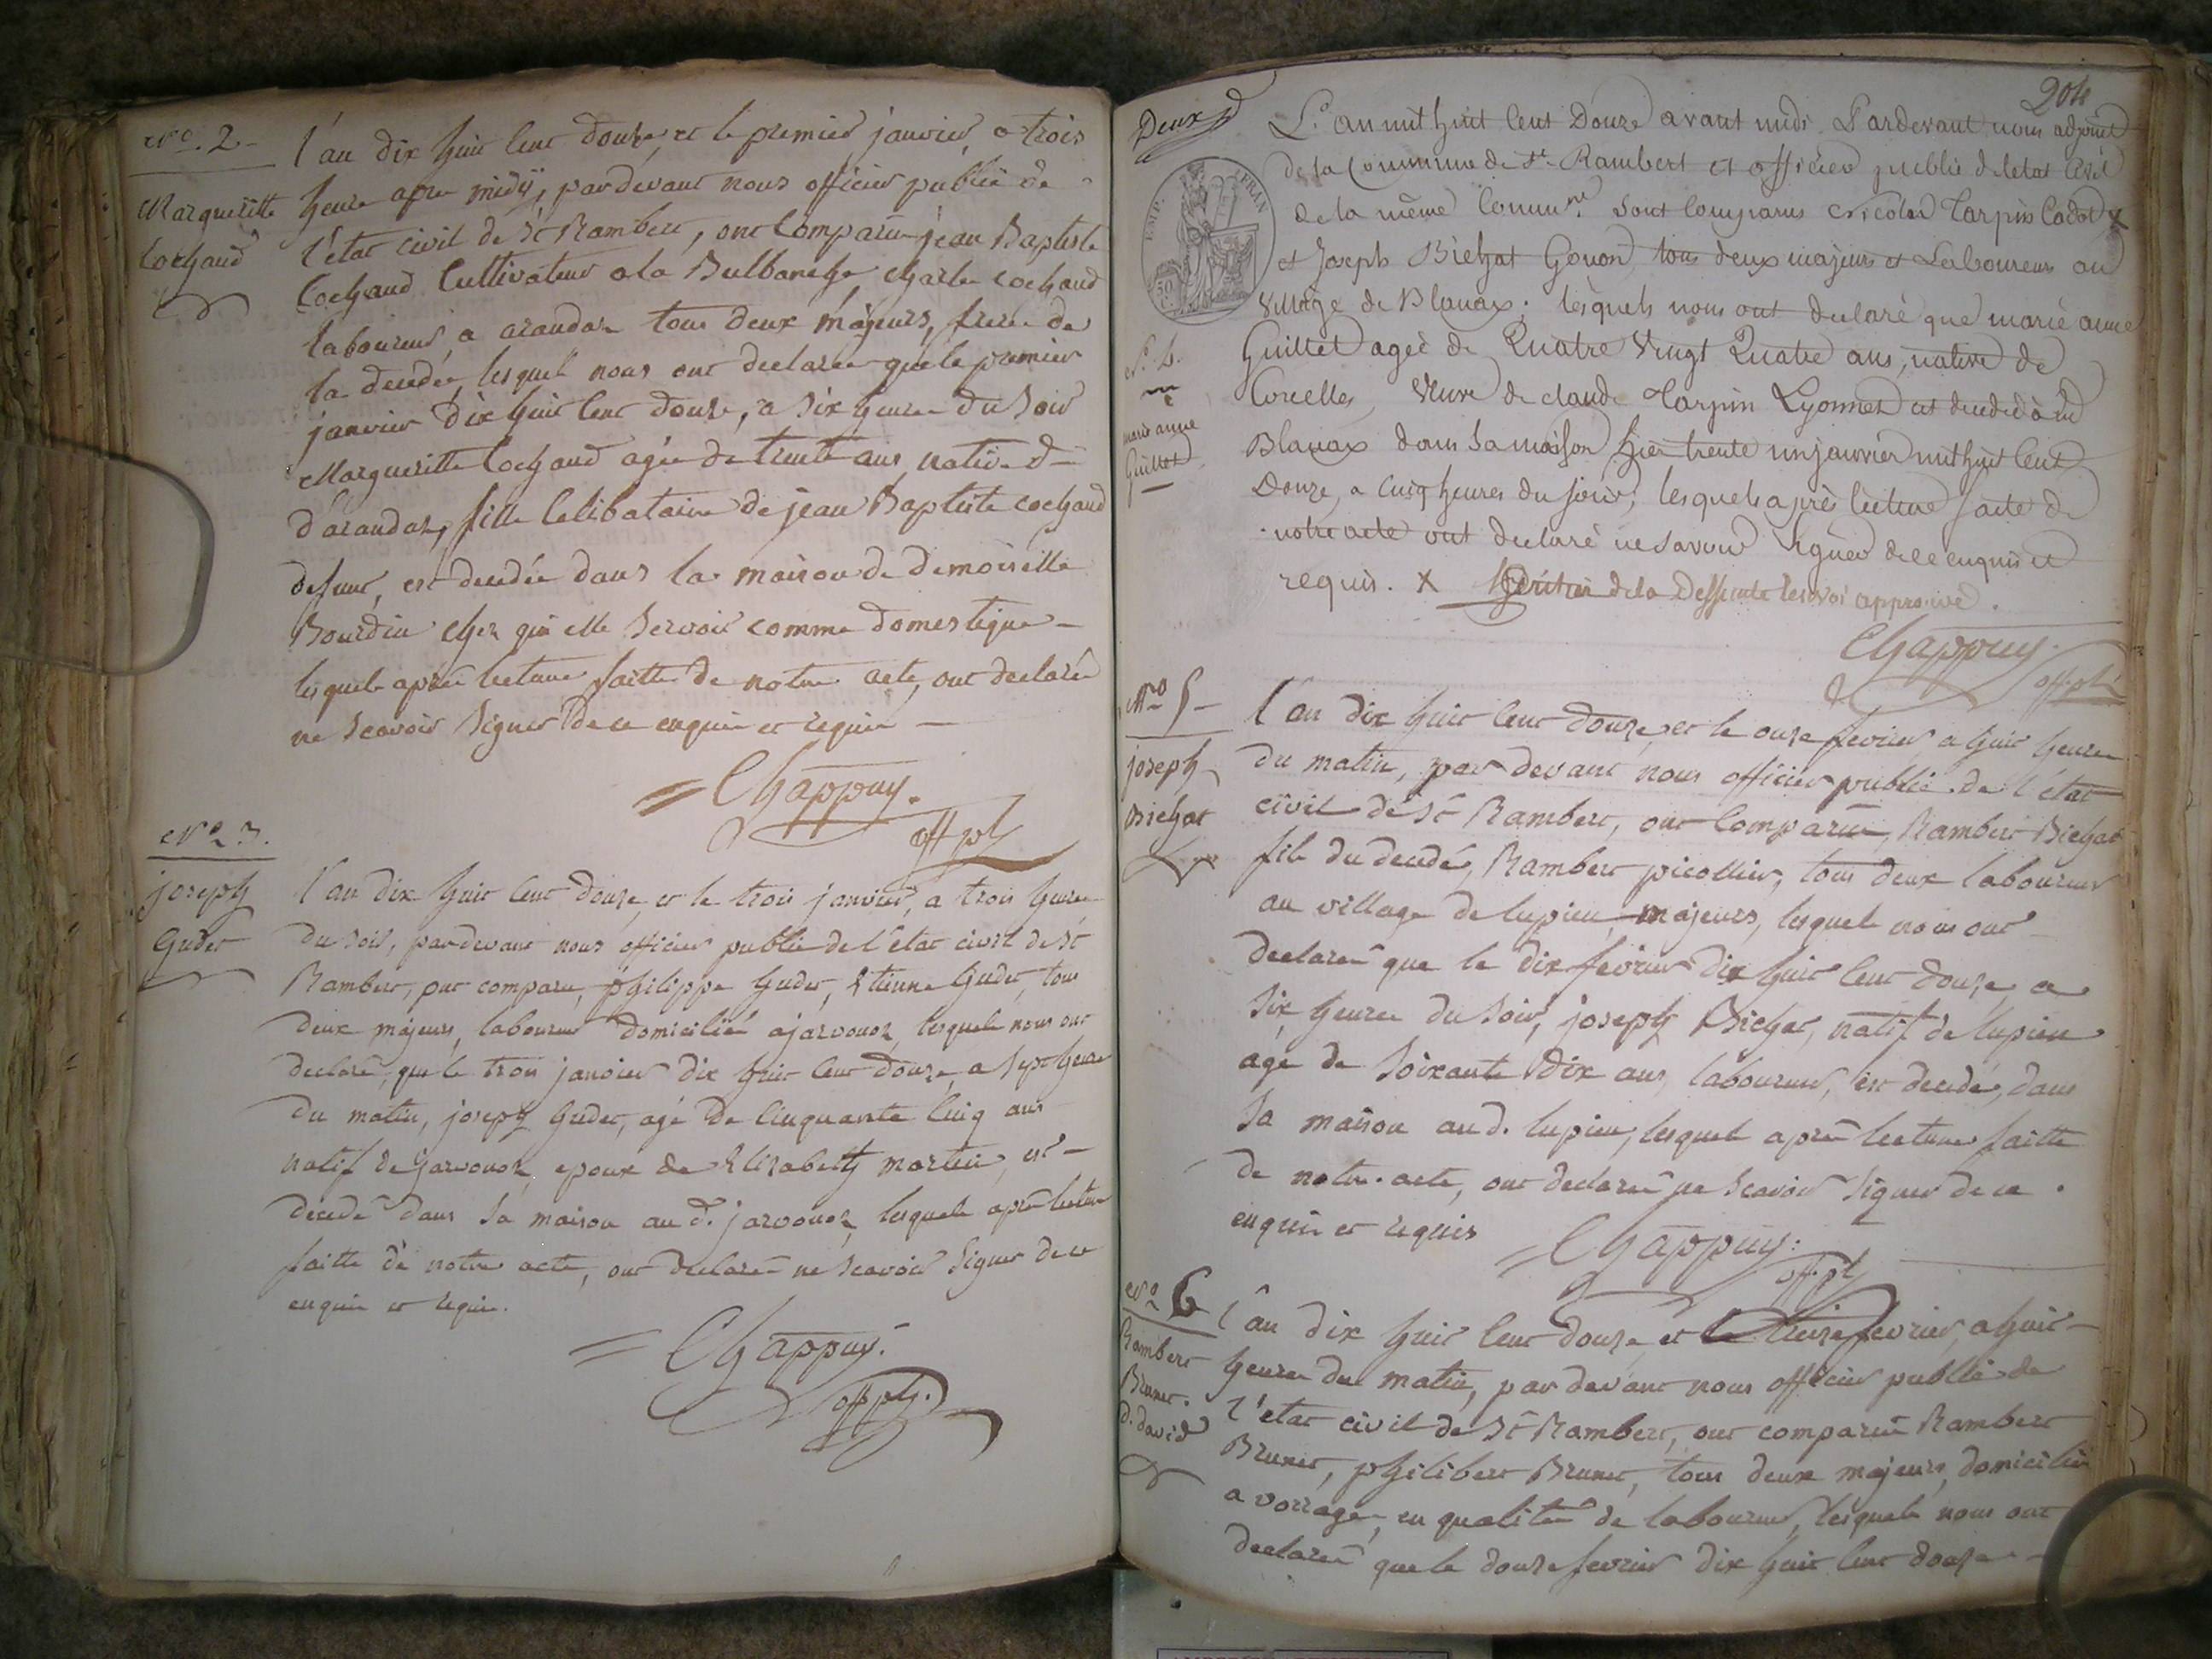 N.° 2.
Margueritte
Cochaud
l'an dix huit cent douze, et le premier janvier, a trois
heure apres midÿ, pardevant nous officier public de
l'état civil de St Rambert, ont comparu jean Baptiste
Cochaud Cultivateur a la Bulbanche, charle cochaud
laboureur, a arandas tous deux majeurs, frere de
la decedée, lesquels nous ont declarée que le premier
janvier dix huit cent douze, a six heures du soir
Margueritte Cochaud agée de trente ans, native d
d'arandas, fille Celibataire de jean Baptiste cochaud
defunt, est decedée dans la maison de Demoiselle
Bourdin chez qui elle servoit comme domestique
lesquels après lecture faitte de notre acte, ont declaré
ne scavoir signer de ce enquis et requis
Chappuy.
off pl
N.° 3.
joseph
Gudet
l'an dix huit cent douze, et le trois janvier, a trois heures
du soir, pardevant nous officier public de l'état civil de St
Rambert, ont comparu, philippe Gudet, Etienne Gudet, tous
deux majeurs, laboureur domicilié a jarvonoz, lesquels nous ont
declaré, que le trois janvier dix huit cent douze, a sept heure
du matin, joseph Gudet, agé de Cinquante Cinq ans
natif de jarvonoz, epoux de Elizabeth martin, est
decedé dans sa maison au d. jarvonoz, lesquels après lecture
faitte de notre acte, ont declaré ne scavoir signer de ce
enquis et requis.
Chappuy.
off pb.
204
Deux
L'an mil huit Cent Douze avant midi Pardevant nous adjoint
de la Commune de St. Rambert et officier public de letat Civil
de la même Commune sont Comparus Nicolas Tarpin Cadot X
et Joseph Bichat Gonon, tous deux majeurs et Laboureurs au
village de Blanaz; lesquels nous ont declaré que marie anne
EMP. FRAN
N.° 4.
marie anne
Guillet
Guillet agée de Quatre Vingt Quatre ans, native de
Corcelles, veuve de claude Tarpin Lyonnet est decedée à
Blanaz dans sa maison hier trente un janvier mil huit Cent
Douze, a Cinq heures du soir; lesquels après lecture faite de
notre acte ont declaré ne savoir signer de ce enquis et
requis. X héritier de la Deffunte renvoi approuvé.
Chappuy.
off pl
N.° 5
joseph
Bichat
l'an dix huit cent douze, et le onze fevrier, a huit heures
du matin, par devant nous officier public de l'état
civil de St Rambert, ont Comparu, Rambert Bichat
fils du decedé, Rambert picollier, tous deux laboureur
au village de lupieu, majeurs, lesquels nous ont
declaré que le dix fevrier dix huit cent douze, a
six heures du soir, joseph Bichat, natif de lupieu
agé de soixante dix ans, laboureur, est decedé, dans
sa maison au d. lupieu, lesquels après lecture faitte
de notre acte, ont declaré ne scavoir signer de ce
enquis et requis
Chappuy.
off pl
N.° 6
Rambert
Brunet.
d. david
l'an dix huit cent douze, et le treize fevrier, a huit
heures du matin, par devant nous officier public de
l'etat civil de St Rambert, ont comparu Rambert
Brunet, philibert Brunet, tous deux majeurs, domicilié
a vorrage, en qualité de laboureur, lesquels nous ont
declaré que le douze fevrier dix huit cent douze